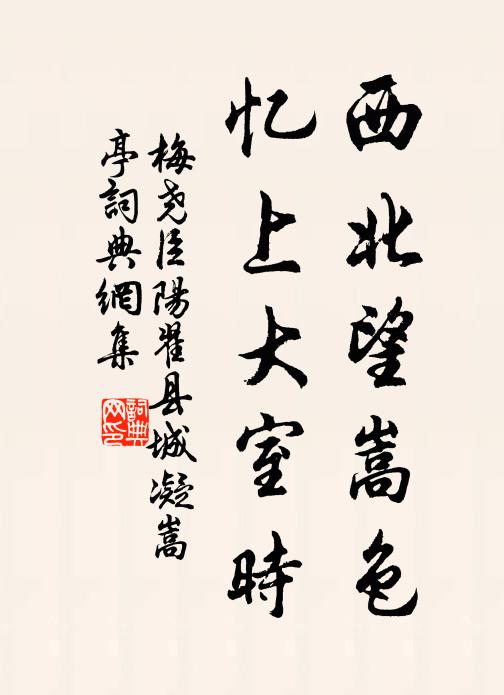 西北望嵩色
忆上大室時
梅尧臣陽翟县城凝嵩
亭詞典網集
詞典
网印